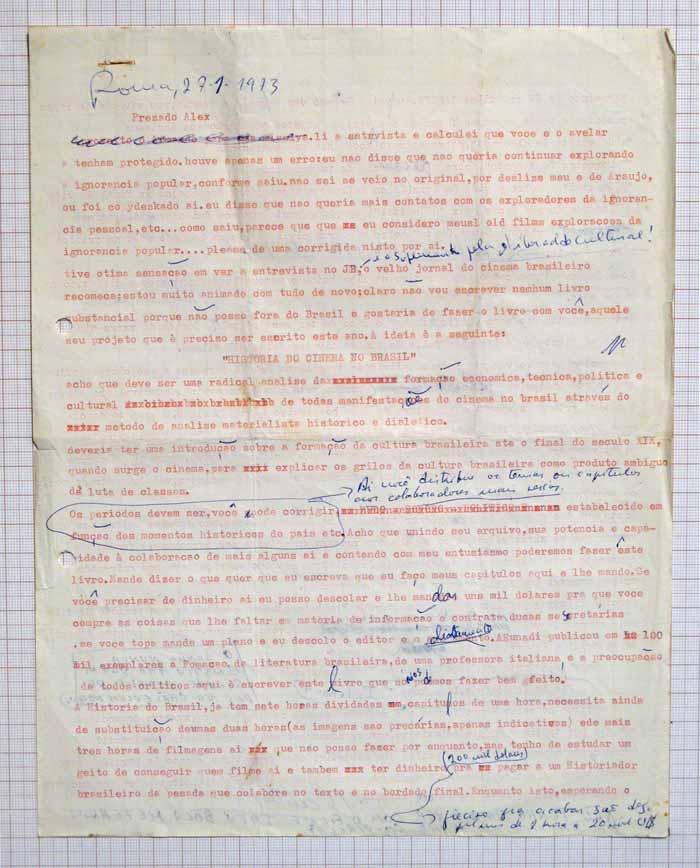 Roma, 27-1-1973
Prezado Alex
li a entrevista e calculei que voce e o avelar
tenham protegido.houve apenas um erro:eu nao disse que nao queria continuar explorando
ignorancia popular,conforme saiu.nao sei se veio no original,por deslize meu e de Araujo,
ou foi copydeskado ai.eu disse que nao queria mais contatos com os exploradores da ignoran-
cia pessoal,etc...como saiu,parece que que eu considero meus old films exploracoes da
ignorancia popular....please da uma corrigida nisto por ai.
tive otima sensação em ver a entrevista no JB,o velho jornal do cinema brasileiro
recomeca:estou muito animado com tudo de novo:claro não vou escrever nenhum livro
substancial porque não posso fora do Brasil e gostaria de fazer o livro com você,aquele
seu projeto que è preciso ser escrito este ano.A ideia è a seguinte:
"HISTORIA DO CINEMA NO BRASIL"
acho que deve ser uma radical analise da formação economica,tecnica,politica e
cultural de todas manifestações do cinema no brasil através do
metodo de analise materialista historico e dialetico.
deveria ter uma introdução sobre a formação da cultura brasileira ate o final do seculo XIX,
quando surge o cinema,para explicar os grilos da cultura brasileira como produto ambiguo
da luta de classes.
Ai você distribui os temas ou capitulos
aos colaboradores mais
Os periodos devem ser,você pode corrigir, estabelecido em
função dos momentos historicos do pais etc.Acho que unindo meu arquivo,sua potencia e capa-
cidade à colaboracao de mais alguns ai e contando com meu entusiasmo poderemos fazer este
livro.Mande dizer o que quer que eu escreva que eu faço meus capitulos aqui e lhe mando.Se
você precisar de dinheiro ai eu posso descolar e lhe mandar uns mil dolares pra que voce
compre as coisas que lhe faltar em materia de informação e contrate duas secretárias
.se voce topa mande um plano e eu descolo o editor e o . publicou em 100
mil exemplares a Fomacao da literatura brasileira,de uma professora italiana e a preocupação
de todos criticos aqui è escrever este livro que só nós podemos fazer bem gfeito.
A Historia do Brasil,ja tem sete horas dividadas em capitulos de uma hora,necessita ainda
de substituicão deumas duas horas(as imagens sao precárias,apenas indicativas) ede mais
tres horas de filmagens ai que não posso fazer por enquanto,mas tenho de estudar um
geito de conseguir quem filme ai e tambem ter dinheiro pra pagar a um Historiador
(200 mil dolares)
brasileiro da pesada que colabore no texto e no bordado final.Enquanto isto,esperando o
preciso pra acabar. são dez
filmes de 1 hora a 20 mil US$